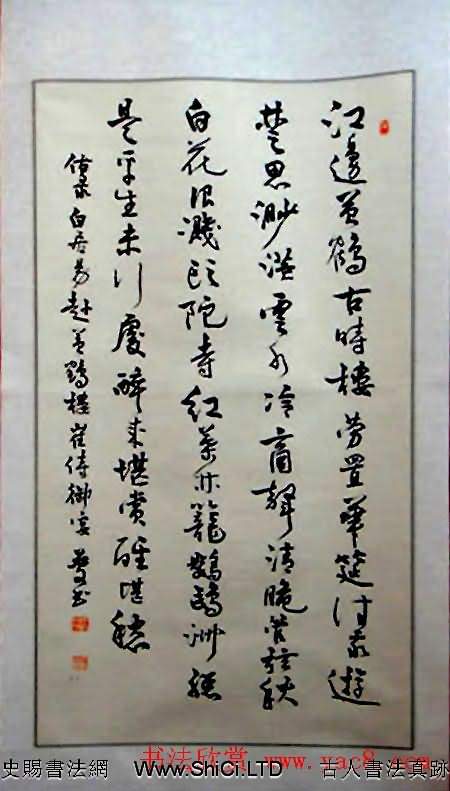 江邊黃鶴古時樓勞置華筵待我遊
楚思渺茫雲水冷商聲清脆管弦秋
白花浪濺頭陀寺紅葉林籠鸚鵡洲總
是平生未行處醉來堪賞醒堪愁
录白居易赴黃鶴樓崔侍御宴 书
书法欣赏 www.yac8.com
史賜書法網 WWW.ShiCi.LTD 古人書法真跡